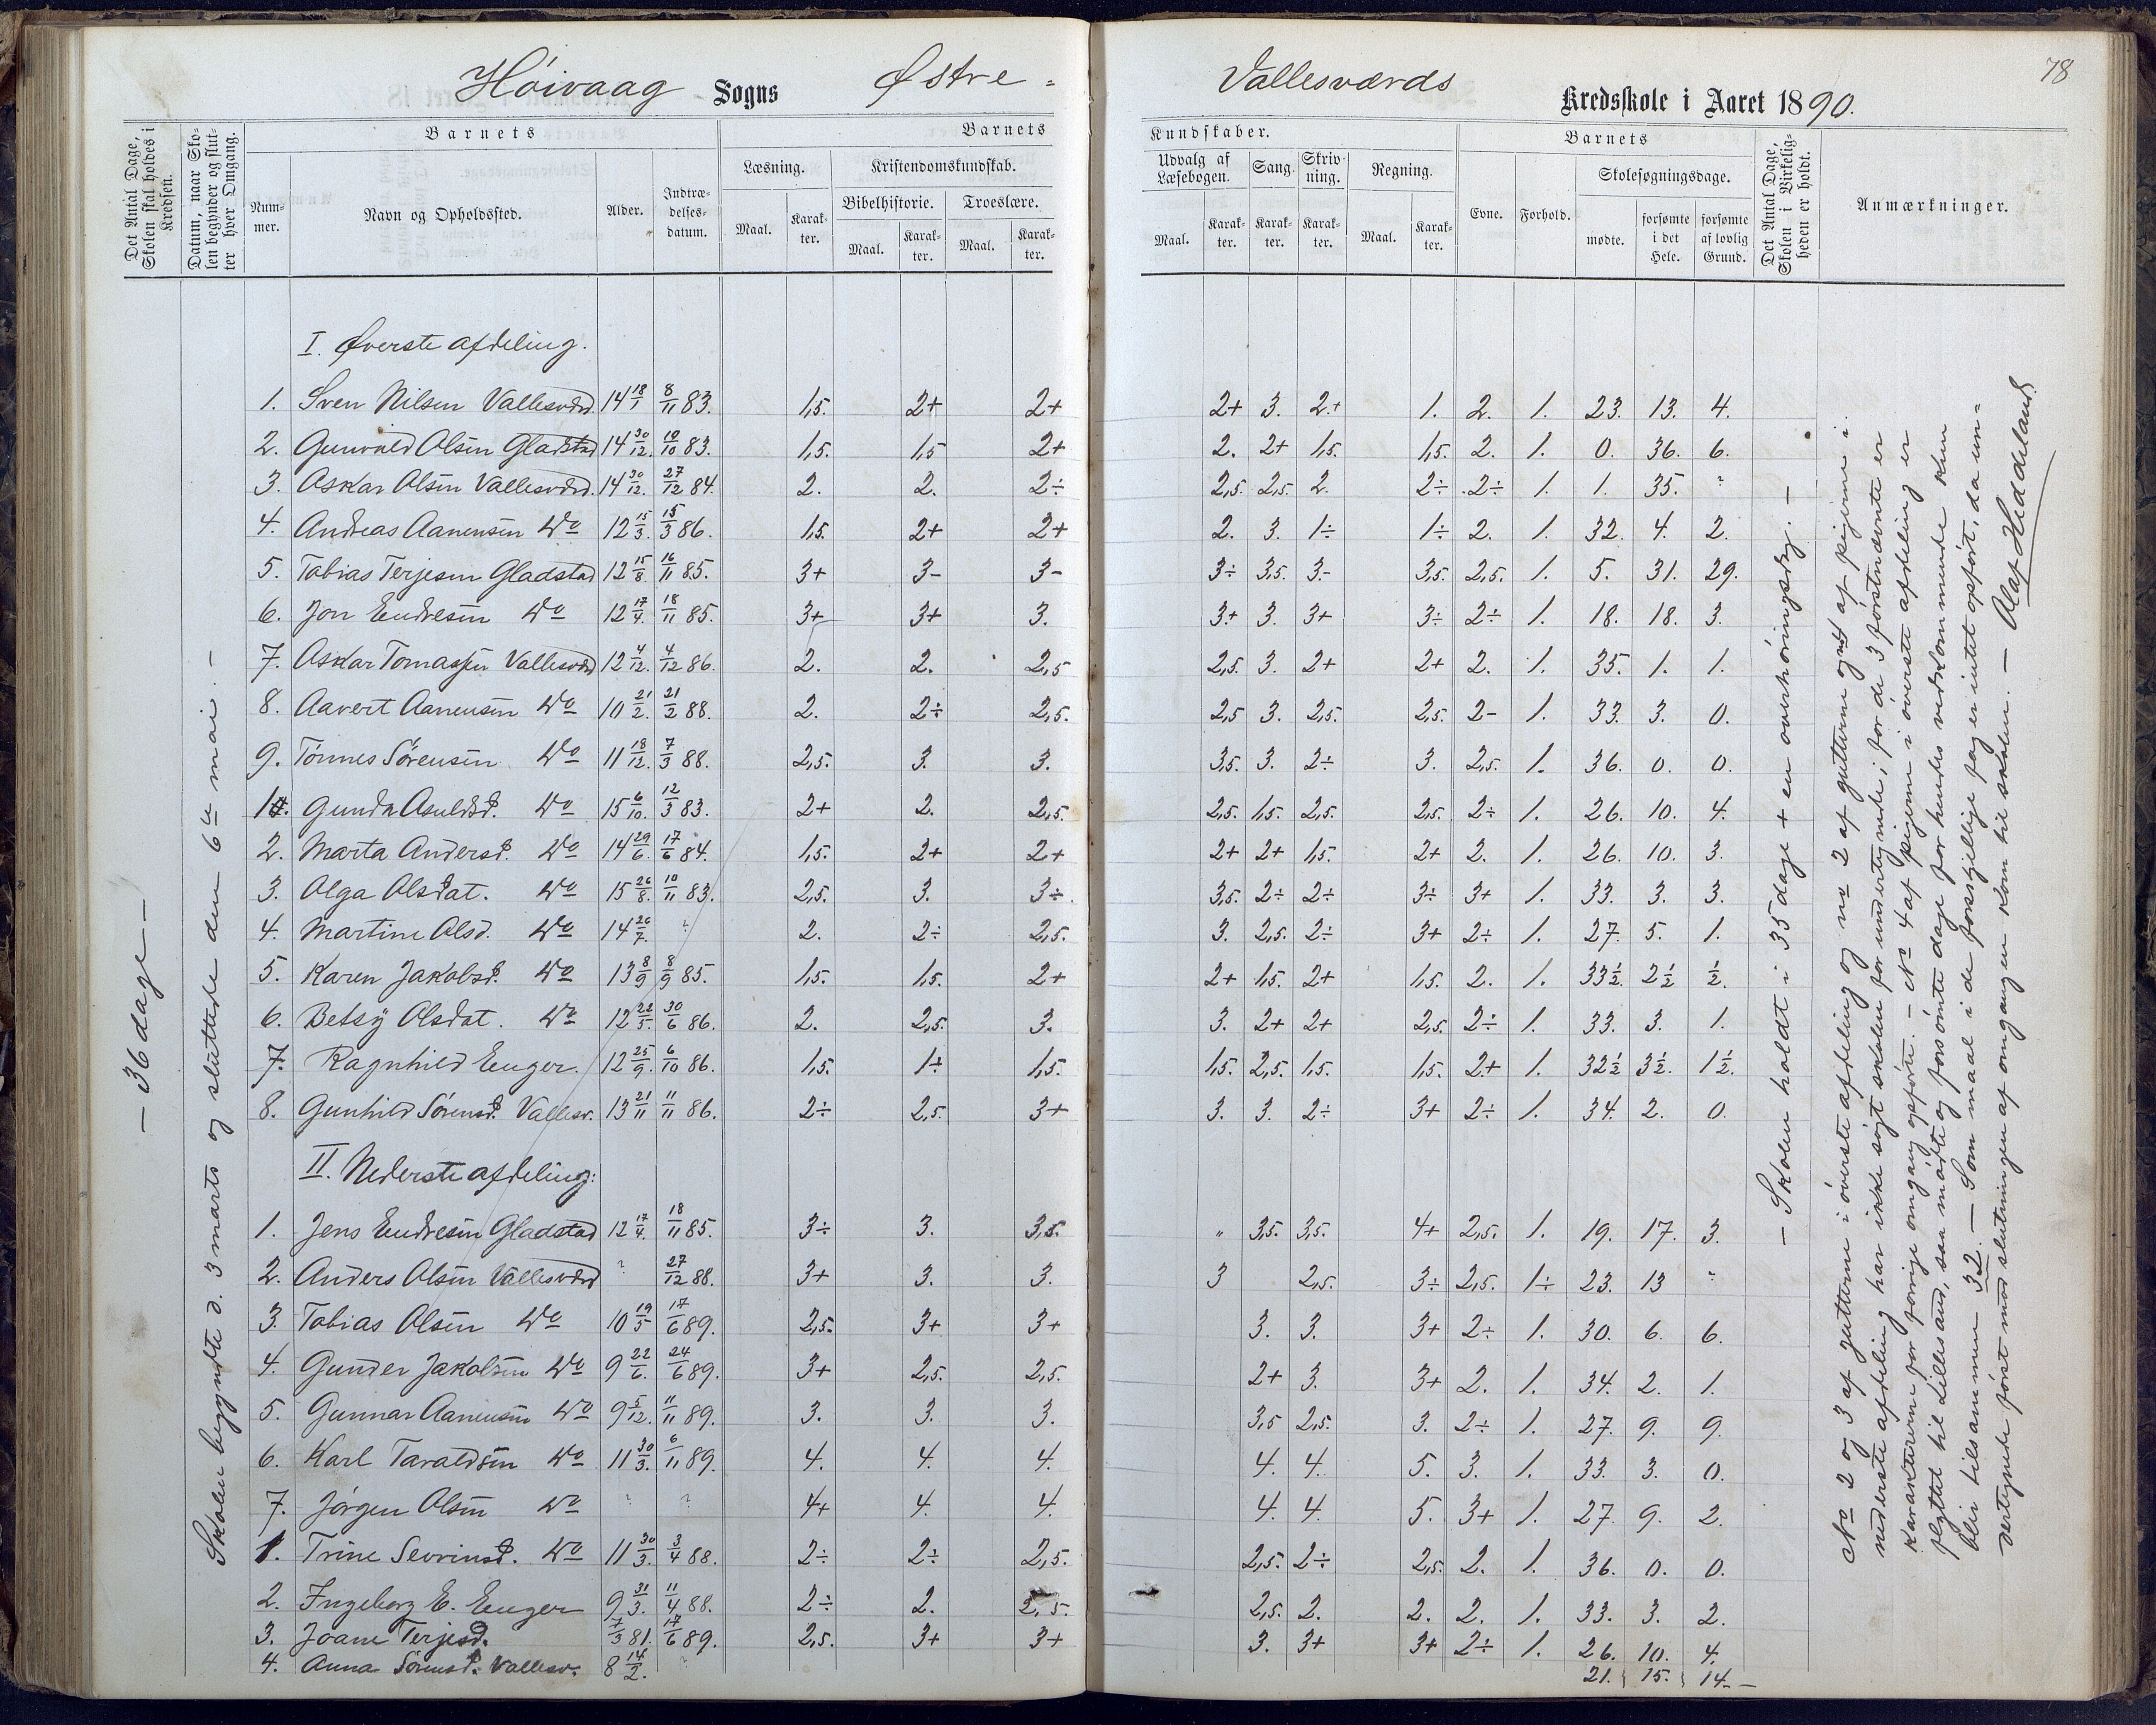 Höivaag Sogns Østre - Vallesværds Kredsskole i Aaret 1890.
78
Det Antal Dage, Skolen skal holdes i Kredsen.
Datum, naar Skolen begynder og slutter hver Omgang.
Barnets
Nummer.
Navn og Opholdssted.
Alder.
Indtrædelsesdatum.
Barnets Kundskaber.
Læsning.
Kristendomskundskab.
Bibelhistorie.
Troeslære.
Maal.
Karakter.
Maal.
Karakter.
Maal.
Karakter.
Udvalg af Læsebogen.
Sang.
Skrivning.
Regning.
Maal.
Karakter.
Karakter.
Karakter.
Maal.
Karakter.
Barnets
Evne.
Forhold.
Skolesøgningsdage.
mødte.
forsømte i det Hele.
forsømte af lovlig Grund.
Det Antal Dage, Skolen i Virkeligheden er holdt.
Anmærkninger.
— 36 dage —
Skolen begyndte d. 3 marts og sluttede den 6te mai. —
I. Øverste afdeling.
1. Sven Nilsen Vallesværd. 14 18/1 8/11 83. 1,5. 2+ 2+ 2+ 3. 2+ 1. 2. 1. 23. 13. 4.
2. Gunvald Olsen Gladstad 14 30/12. 10/10 83. 1,5. 1,5 2+ 2. 2+ 1,5. 1,5. 2. 1. 0. 36. 6.
3. Askar Olsen Vallesværd. 14 30/12. 27/12 84. 2. 2. 2÷ 2,5. 2,5. 2. 2÷ 2÷ 1. 1. 35. ?
4. Andreas Aanensen Do 12 15/3. 15/3 86. 1,5. 2+ 2+ 2. 3. 1÷ 1÷ 2. 1. 32. 4. 2.
5. Tobias Terjesen Gladstad 12 15/8. 16/11 85. 3+ 3- 3- 3÷ 3,5. 3.- 3,5. 2,5. 1. 5. 31. 29.
6. Jon Endresen Do 12 17/4. 18/11 85. 3+ 3+ 3. 3+ 3. 3+ 3÷ 2÷ 1. 18. 18. 3.
7. Askar Tomassen Vallesværd 12 4/12. 4/12 86. 2. 2. 2,5 2,5. 3. 2+ 2+ 2. 1. 35. 1. 1.
8. Aavert Aanensen Do 10 21/2. 21/2 88. 2. 2÷ 2,5. 2,5 3. 2,5. 2,5. 2- 1. 33. 3. 0.
9. Tönnes Sörensen Do 11 18/12. 7/3 88. 2,5. 3. 3. 3,5. 3. 2÷ 3. 2,5. 1. 36. 0. 0.
1. Gunda Asuldsd. Do 15 6/10. 12/3 83. 2+ 2. 2,5. 2,5. 1,5. 2,5. 2,5. 2÷ 1. 26. 10. 4.
2. Marta Andersd. Do 14 29/6. 17/6 84. 1,5. 2+ 2+ 2+ 2+ 1,5. 2+ 2. 1. 26. 10. 3.
3. Olga Olsdat. Do 15 26/8. 10/11 83. 2,5. 3. 3÷. 3,5. 2÷ 2÷ 3÷ 3+ 1. 33. 3. 3.
4. Martine Olsd. Do 14 26/7. ? 2. 2÷ 2,5. 3. 2,5. 2÷ 3+ 2÷ 1. 27. 5. 1.
5. Karen Jakobsd. Do 13 8/9 8/9 85. 1,5. 1,5. 2+ 2+ 1,5. 2+ 1,5. 2. 1. 33½. 2½ ½.
6. Betsy Olsdat. Do 12 22/5. 30/6 86. 2. 2,5. 3. 3. 2+ 2+ 2,5. 2÷ 1. 33. 3. 1.
7. Ragnhild Enger. 12 25/9. 6/10 86. 1,5. 1÷ 1,5. 1,5. 2,5. 1,5. 1,5. 2+ 1. 32½ 3½. 1½.
8. Gunhild Sörensd. Vallesv. 13 21/11 11/11 86. 2÷ 2,5. 3+ 3. 3. 2÷ 3+ 2÷ 1. 34. 2. 0.
II. Nederste afdeling:
1. Jens Endresen Gladstad 12 17/4. 18/11 85. 3÷ 3. 3,5. " 3,5. 3,5. 4+ 2,5. 1. 19. 17. 3.
2. Anders Olsen Vallesværd ? 27/12 88. 3+ 3. 3. 3 2,5. 3÷ 2,5. 1÷ 23. 13 ?
3. Tobias Olsen Do 10 19/5 17/6 89. 2,5. 3+ 3+ 3. 3. 3+ 2÷ 1. 30. 6. 6.
4. Gunder Jakobsen Do 9 22/6. 24/6 89. 3+ 2,5. 2,5. 2+ 3. 3+ 2. 1. 34. 2. 1.
5. Gunnar Aanensen Do 9 5/12. 11/11 89. 3. 3. 3. 3,5 2,5. 3. 2÷ 1. 27. 9. 9.
6. Karl Taraldsen Do 11 30/3. 6/11 89. 4. 4. 4. 4. 4. 5. 3. 1. 33. 3. 0.
7. Jörgen Olsen Do ? ? 4+ 4. 4. 4. 4. 5. 3+ 1. 27. 9. 2.
1. Trine Sevrinsd. Do 11 30/3. 3/4 88. 2÷ 2÷ 2,5. 2,5. 2÷ 2,5. 2. 1. 36. 0. 0.
2. Ingeborg E. Enger 9 31/3. 11/4 88. 2÷ 2. 2,5. 2,5. 2. 2. 2. 1. 33. 3. 2.
3. Joane Terjesd. 7/3 81. 17/6 89. 2,5. 3+ 3+ 3. 3+ 3+ 2÷ 1. 26. 10. 4.
4. Anna Sörensd. Vallesv. 8 14/2. ? 21. 15. 14. —
— Skolen holdt i 35 dage + en overhöringsdag. —
No 2 og 3 af gutterne i överste afdeling og no 2 af gutterne og 4 af pigerne i
nederste afdeling har ikke sögt skolen for undertegnede; for de 3 förstnævnte er
karaktererne for forrige omgang opförte. — No 4 af pigerne i överste afdeling er
flyttet til Lillesand, saa mödte og forsömte dage for hendes vedkommende kun
blir tilsammen 32. — Som maal i de forskjellige fag er intet opfört, da un-
dertegnede först mod slutningen af omgangen kom til skolen. — Olaf Heddeland.